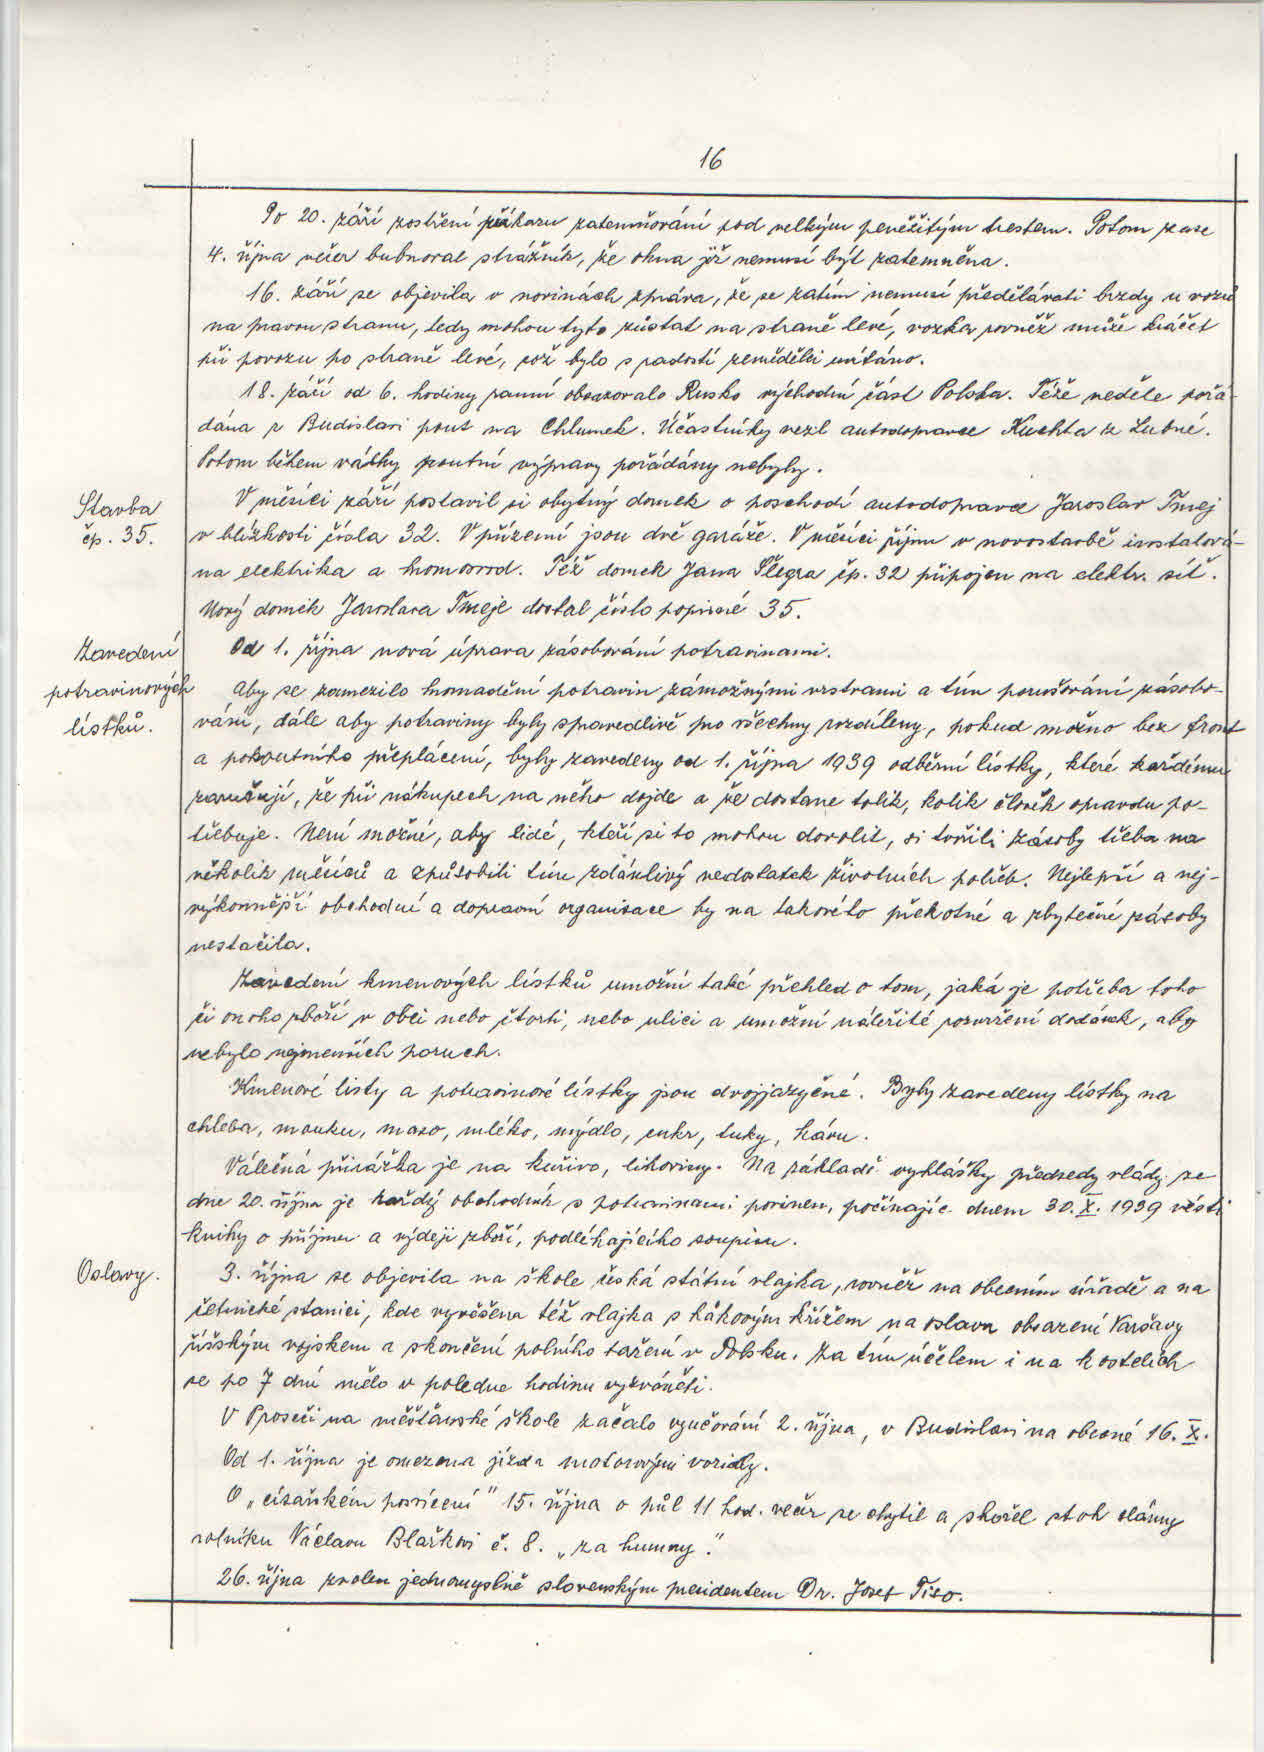 16
Po 20. září zostření příkazu zatemňování pod velkým peněžitým trestem. Potom zase
4. října večer bubnoval strážník, že okna již nemusí být zatemněna.
16. září se objevila v novinách zpráva, že se zatím nemusí předělávati brzdy u vozů
na pravou stranu, tedy mohou tyto zůstat na straně levé, vozka rovněž může kráčet
při povozu po straně levé, což bylo s radostí zemědělci uvítáno.
18. září od 6. hodiny ranní obsazovalo Rusko východní část Polska. Téže neděle pořá-
dána z Budislavi pout na Chlumek. Účastníky vezl autodopravce Kuchta z Lubné.
Potom během války poutní výpravy pořádány nebyly.
Stavba
čp. 35.
V měsíci září postavil si obytný domek o poschodí autodopravce Jaroslav Tmej
v blízkosti čísla 32. V přízemí jsou dvě garáže. V měsíci říjnu v novostavbě instalová-
na elektrika a hromosvod. Též domek Jana Šlegra čp. 32 připojen na elektr. síť.
Nový domek Jaroslava Tmeje dostal číslo popisné 35.
Zavedení
potravinových
lístků.
Od 1. října nová úprava zásobování potravinami.
Aby se zamezilo hromadění potravin zámožnými vrstvami a tím porušování zásobo-
vání, dále aby potraviny byly spravedlivě pro všechny rozdíleny, pokud možno bez front
a pokoutního přeplácení, byly zavedeny od 1. října 1939 odběrní lístky, které každému
zaručují, že při nákupech na něho dojde a že dostane tolik, kolik člověk opravdu po-
třebuje. Není možné, aby lidé, kteří si to mohou dovolit, si tvořili zásoby třeba na
několik měsíců a způsobili tím zdánlivý nedostatek životních potřeb. Nejlepší a nej-
výkonnější obchodní a dopravní organisace by na takovéto překotné a zbytečné zásoby
nestačila.
Zavedení kmenových lístků umožní také přehled o tom, jaká je potřeba toho
či onoho zboží v obci nebo čtvrti, nebo ulici a umožní náležité rozvržení dodávek, aby
nebylo nejmenších poruch.
Kmenové listy a potravinové lístky jsou dvojjazyčné. Byly zavedeny lístky na
chleba, mouku, maso, mléko, mýdlo, cukr, tuky, kávu.
Válečná přirážka je na kuřivo, lihoviny. Na základě vyhlášky předsedy vlády ze
dne 20. října je každý obchodník s potravinami povinen, počínajíc dnem 30. X. 1939 vésti
knihy o příjmu a výdeji zboží, podléhajícího soupisu.
Oslavy.
3. října se objevila na škole česká státní vlajka, rovněž na obecním úřadě a na
četnické stanici, kde vyvěšena též vlajka s hákovým křížem na oslavu obsazení Varšavy
říšským vojskem a skončení polního tažení v Polsku. Za tím účelem i na kostelích
se po 7 dní mělo v poledne hodinu vyzváněti.
V Proseči na měšťanské škole začalo vyučování 2. října, v Budislavi na obecné 16. X.
Od 1. října je omezena jízda motorovými vozidly.
O „císařském posvícení" 15. října o půl 11 hod. večer se chytil a shořel stoh slámy
rolníku Václavu Blažkovi č. 8. „za humny."
26. října zvolen jednomyslně slovenským presidentem Dr. Josef Tiso.